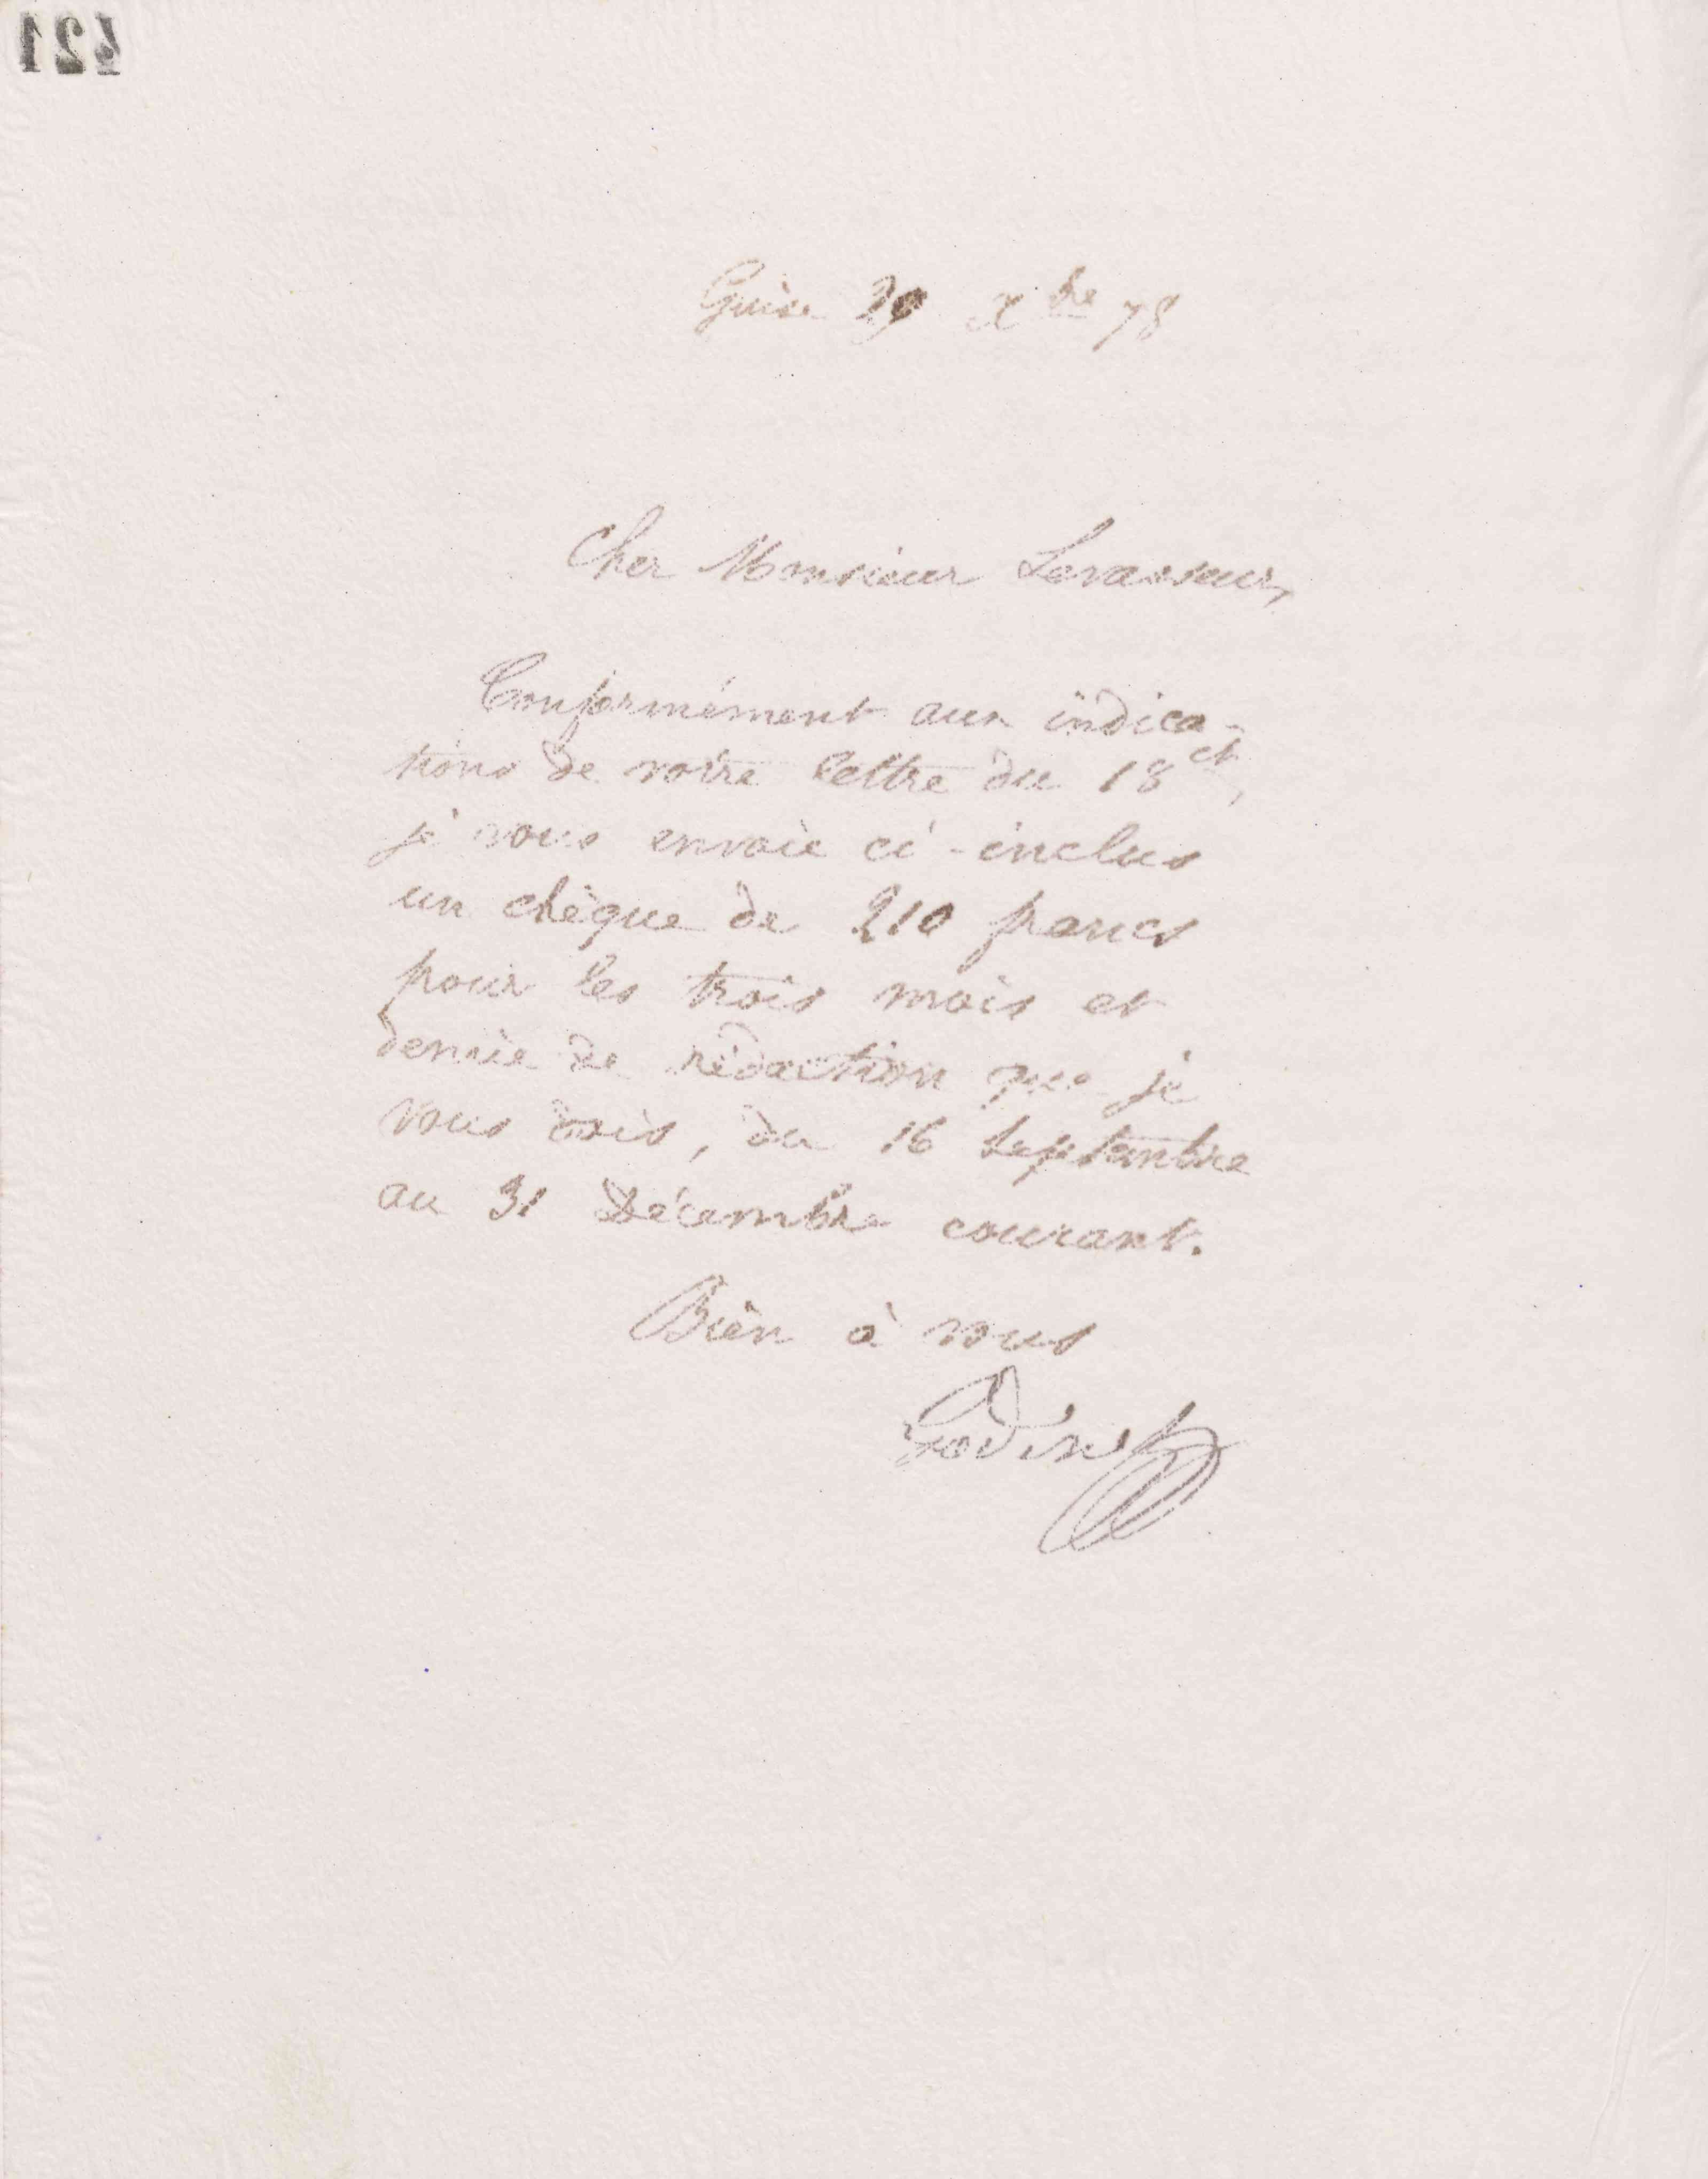 421
Guise 29 Xbre 78
Cher Monsieur Levasseur,
Conformément aux indica-
tions de votre lettre du 18 ct,
je vous envoie ci-inclus
un chèque de 210 francs
pour les trois mois et
demie de rédaction que je
vous dois, du 16 Septembre
au 31 Décembre courant.
Bien à vous
Godin